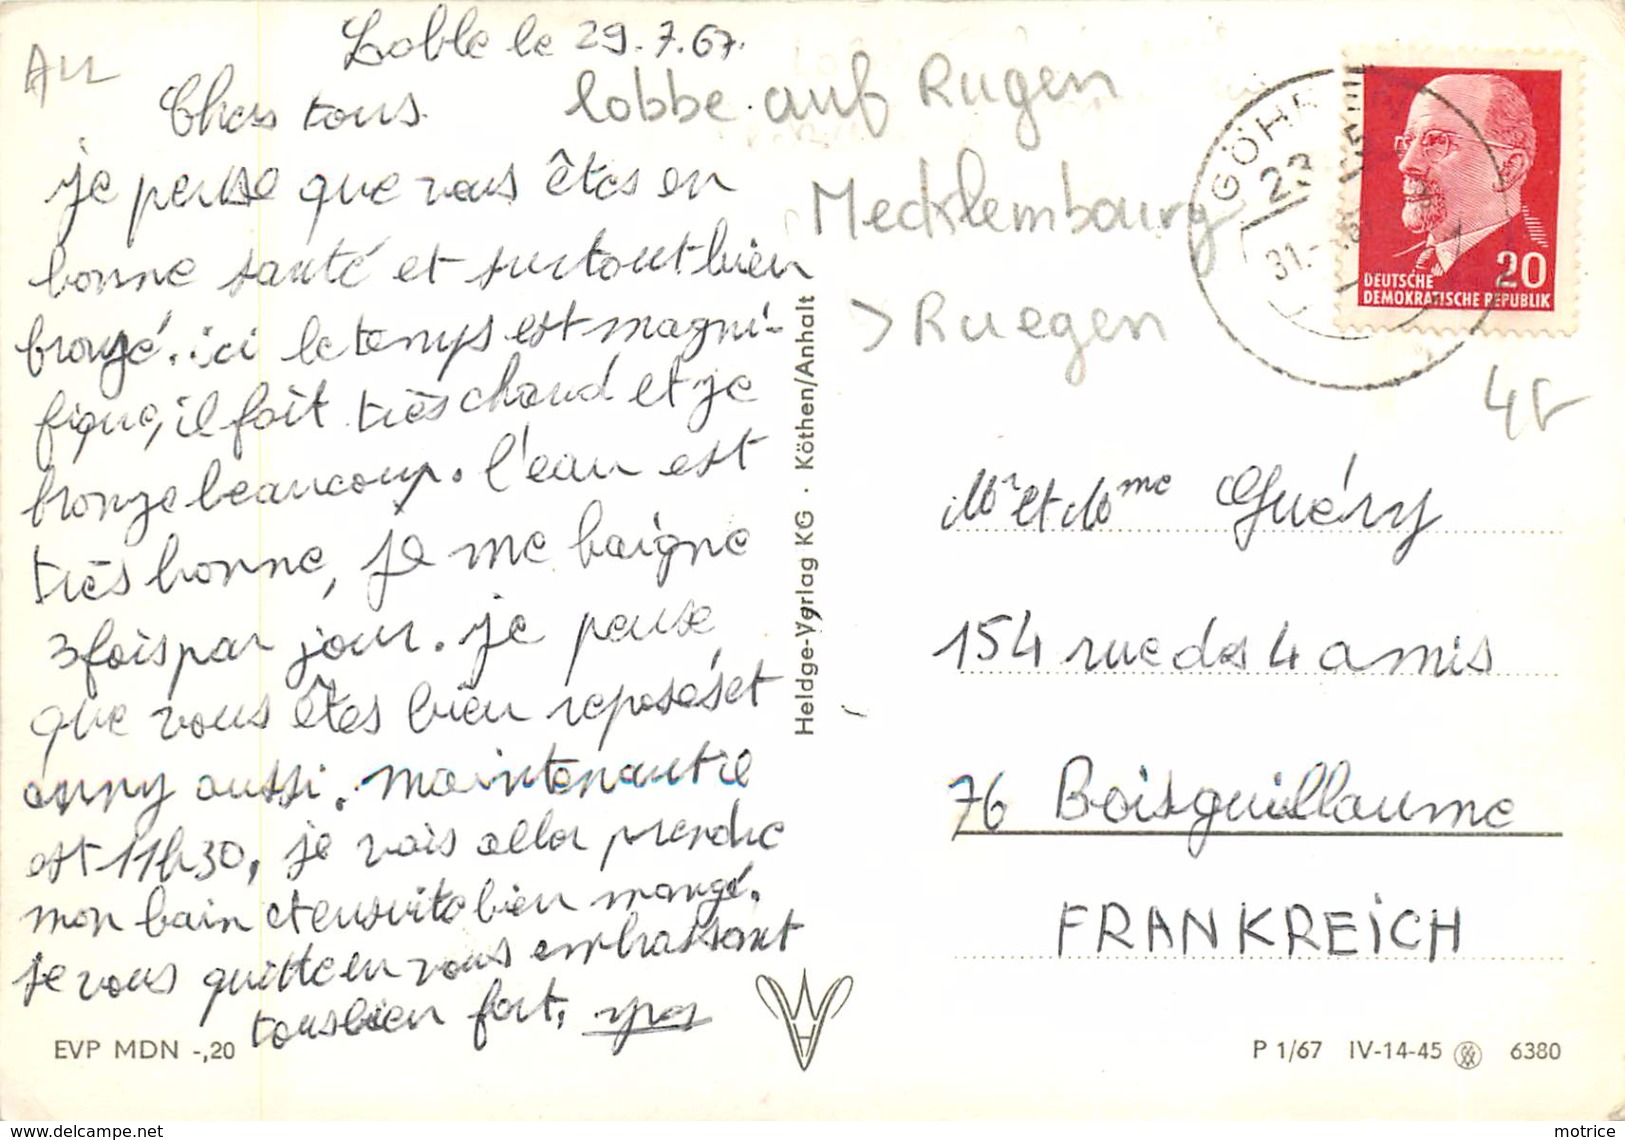 Lobbe le 29.7.67.
All
Chers tous
lobbe auf Rugen
Mecklembourg
> Ruegen
je pense que vous êtes en
bonne santé et surtout bien
bronzé. ici le temps est magni-
fique, il fait très chaud et je
bronze beaucoup. l'eau est
très bonne, je me baigne
3 fois par jour. je pense
que vous êtes bien reposés et
anny aussi. maintenant il
est 11h30, je vais aller prendre
mon bain et ensuite bien mangé.
je vous quitte en vous embrassant
tous bien fort.
EVP MDN -,20
Heldge-Verlag KG · Köthen/Anhalt
GÖHREN
23
31.
DEUTSCHE
DEMOKRATISCHE REPUBLIK
20
Mr et Mme Guéry
154 rue des 4 amis
76 Boisguillaume
FRANKREICH
P 1/67 IV-14-45 6380
www.delcampe.net
motrice